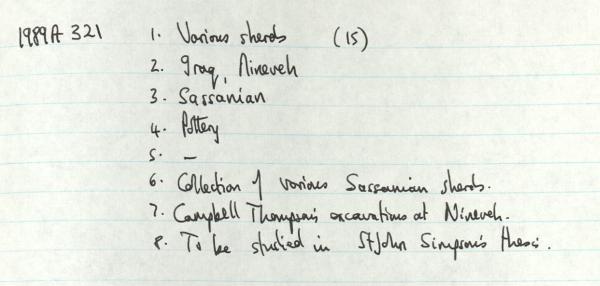 1989A 321 1. Various sherds (15)
2. Iraq, Nineveh
3. Sassanian
4. Pottery
5. —
6. Collection of various Sassanian sherds.
7. Campbell Thompson's excavations at Nineveh.
8. To be studied in StJohn Simpson's thesis.